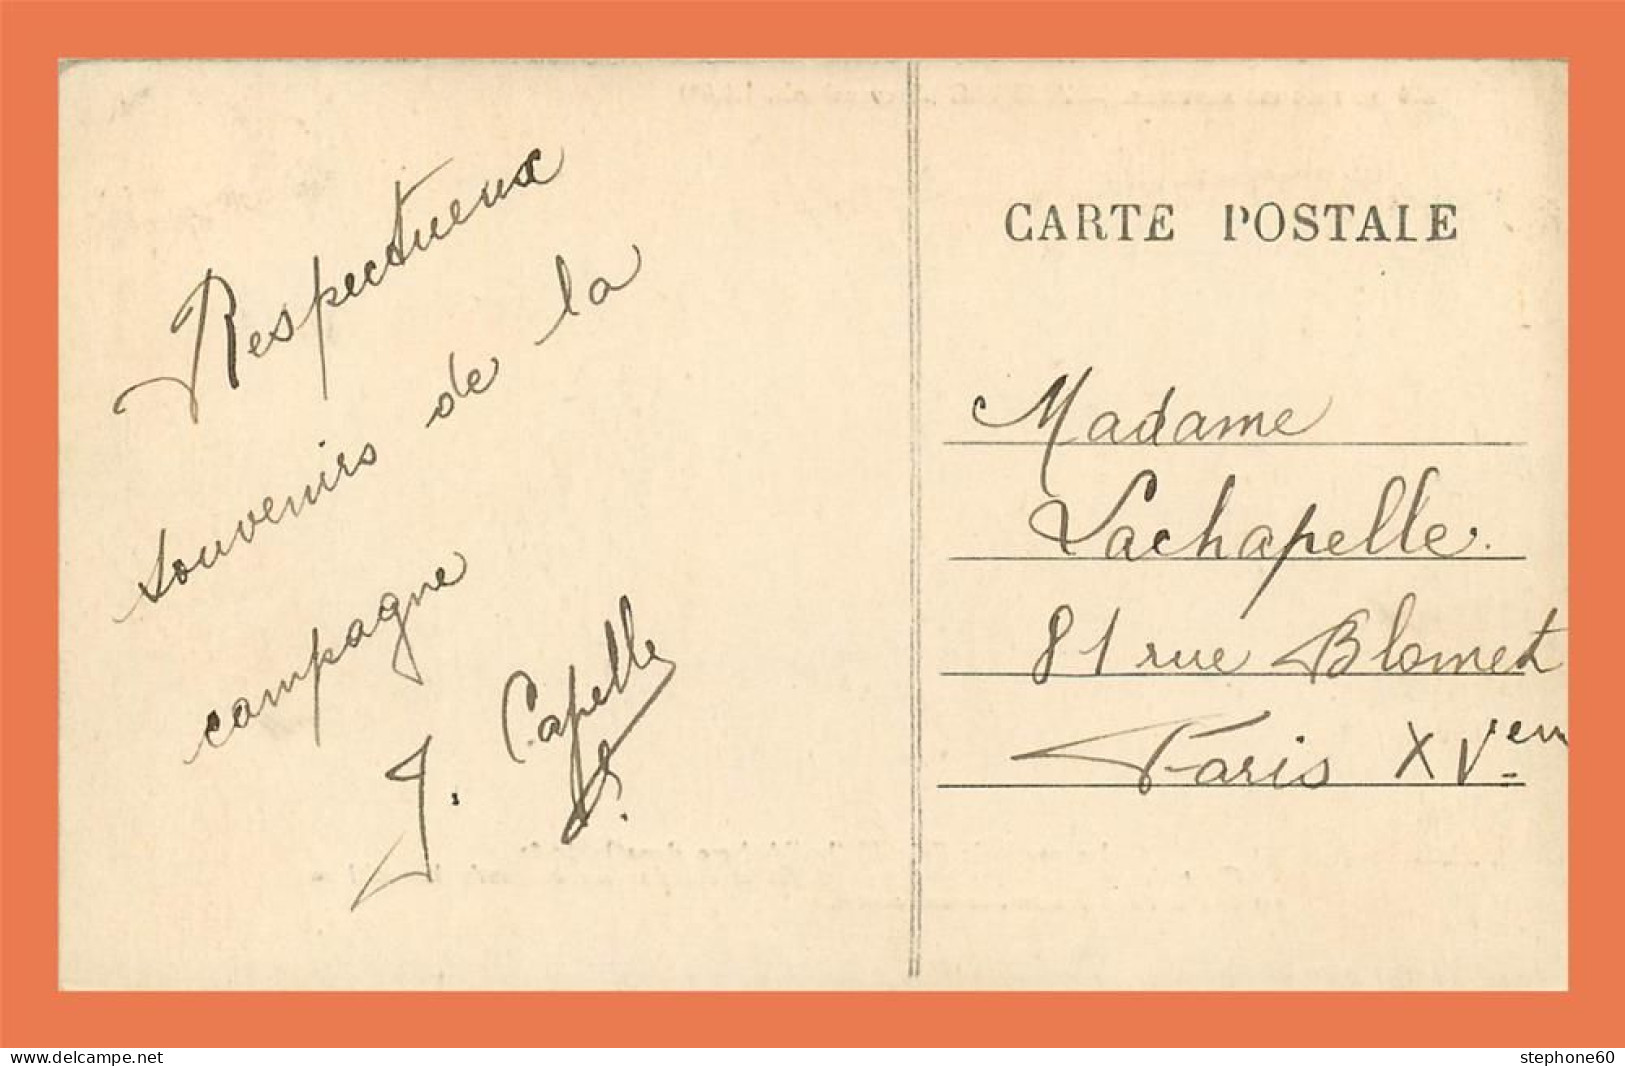 Respectueux
souvenirs de la
campagne
J. Capelle
CARTE POSTALE
Madame
Lachapelle.
81 rue Blomet
Paris XVem
www.delcampe.net
stephone60